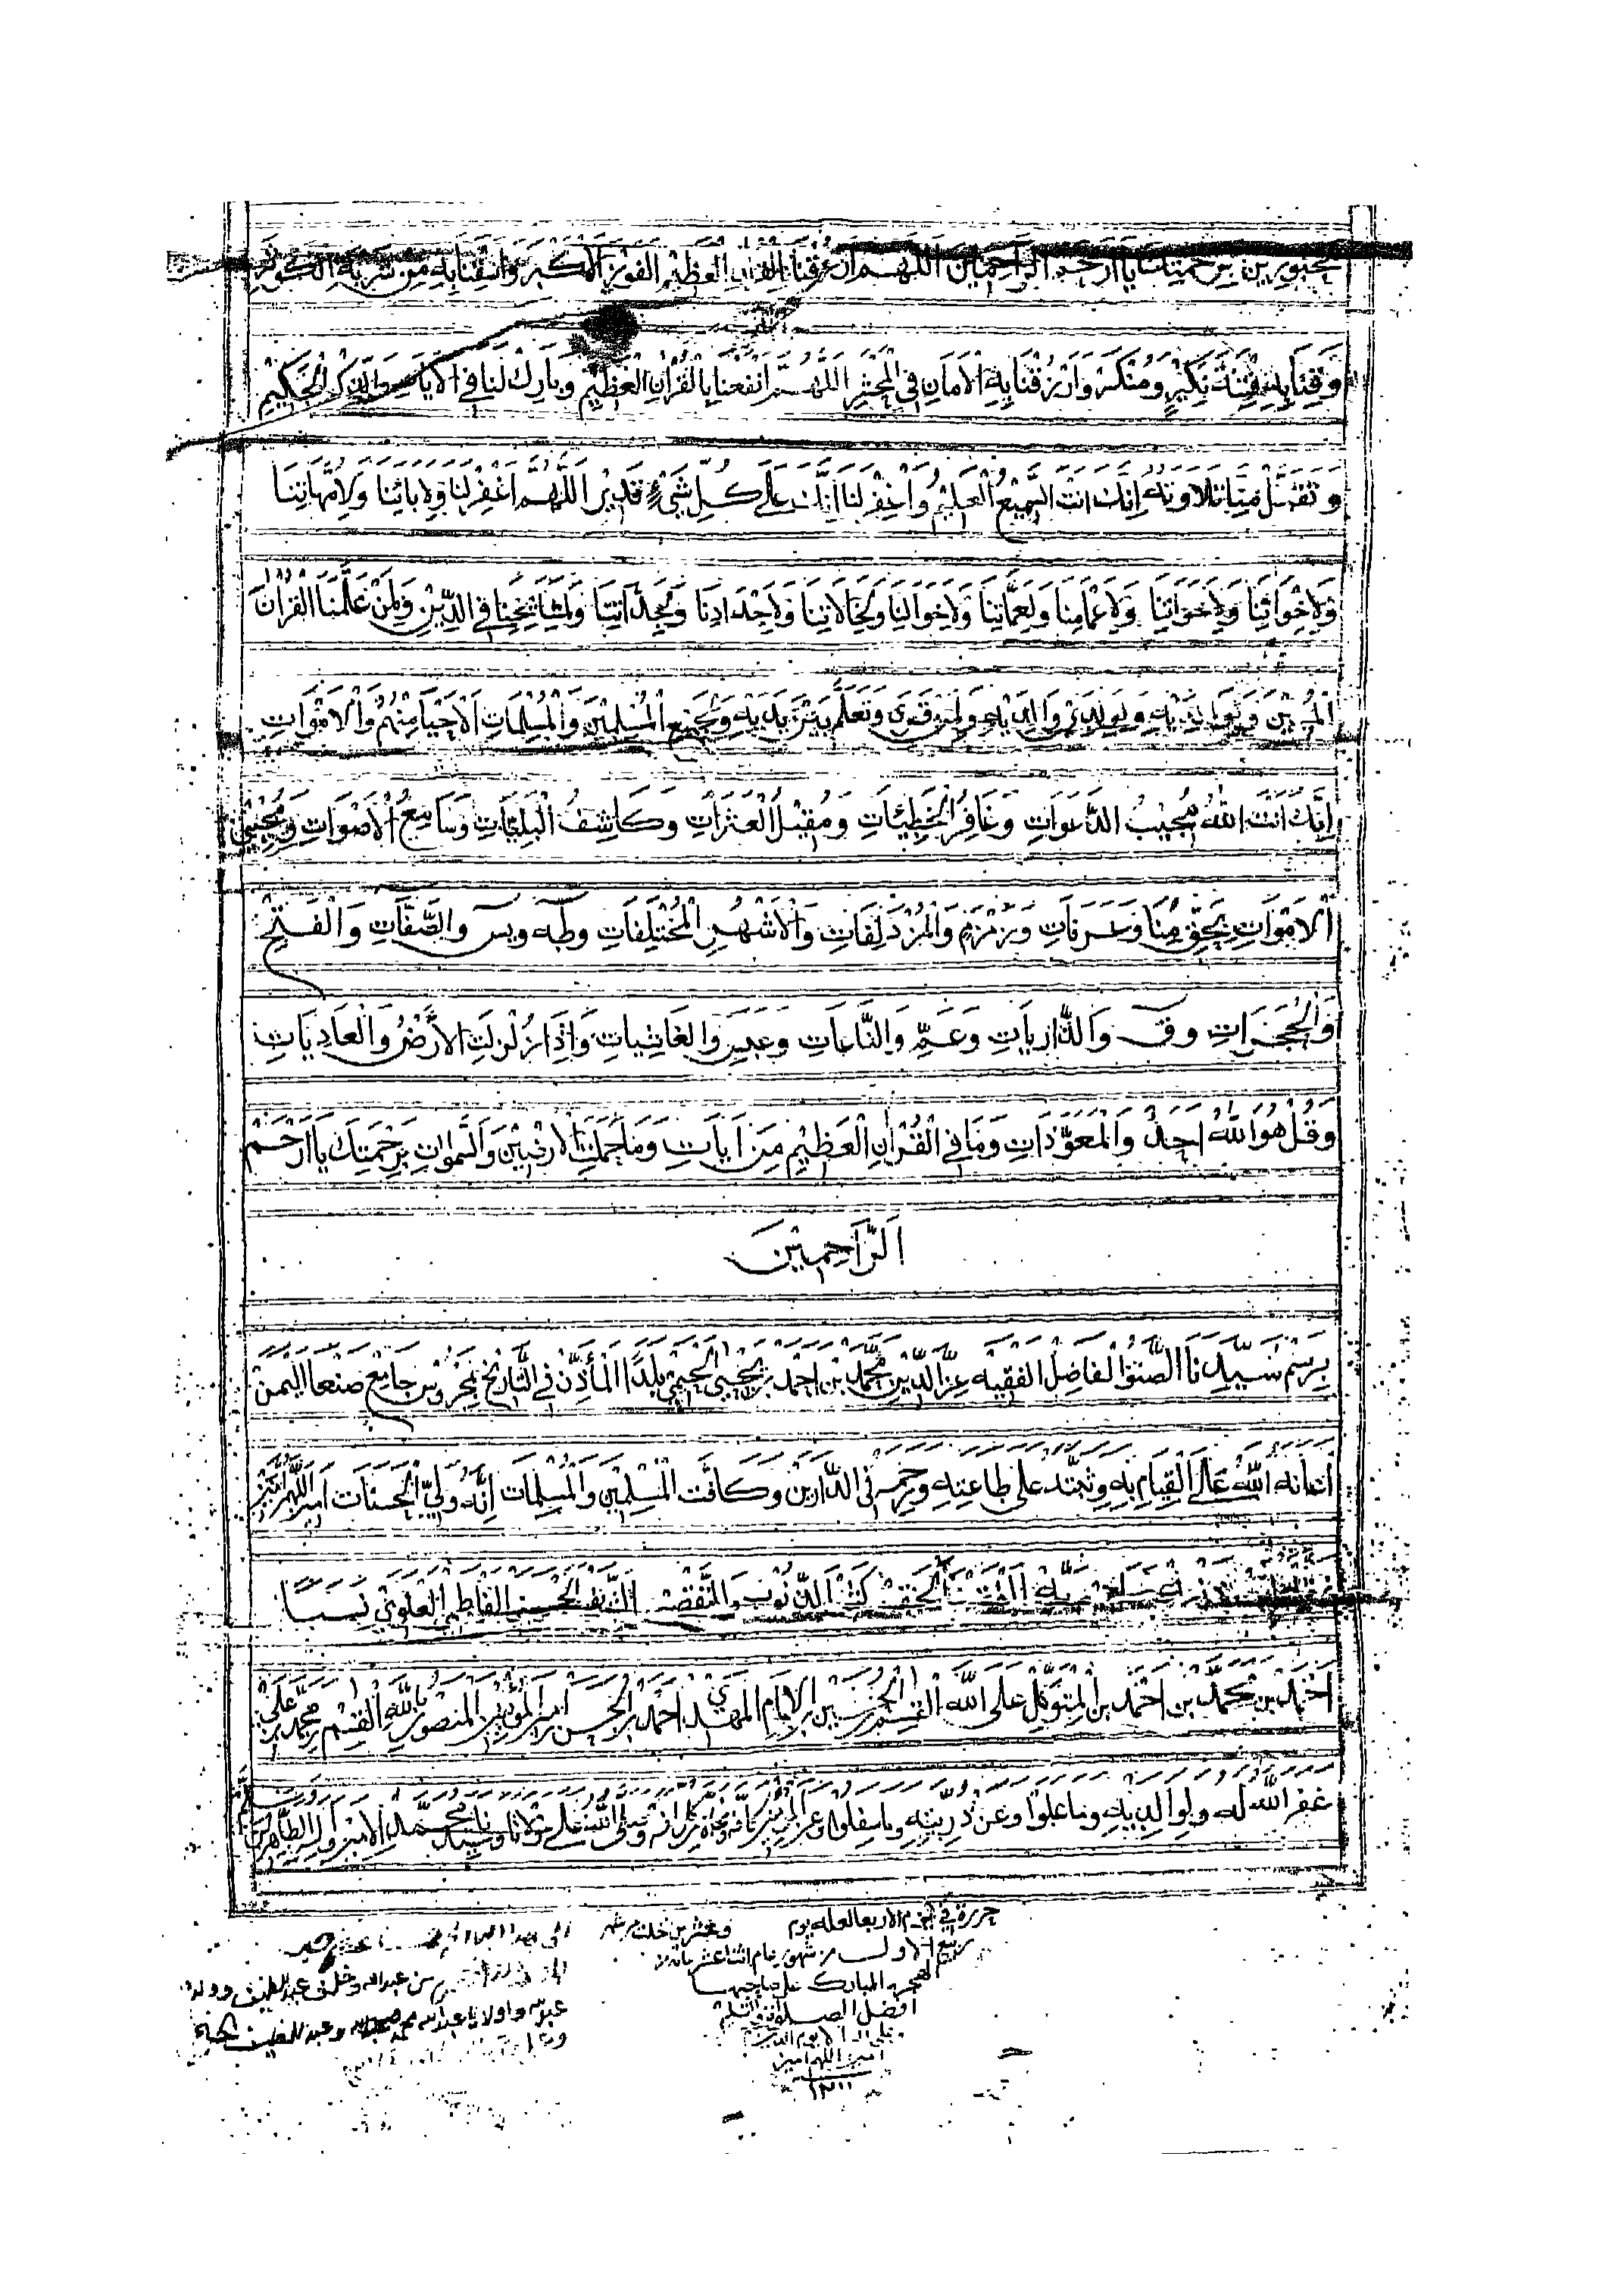 محبورين برحمتك يا ارحم الراحمين اللهم ارزقنا بالقران العظيم الفوز الاكبر واسقنا به من شربة الكوثر
وَقِنَا بِهِ فِتْنَةَ نَكِيْرٍ وَمُنْكَرْ وَارْزُقْنَا بِهِ الْاَمَانِ فِي الْمَحْشَرِ اللَّهُمَّ انْفَعْنَا بِالْقُرْانِ الْعَظِيْمِ وَبَارِكْ لَنَا فِي الْايَاتِ وَالذِّكْرِ الْحَكِيْمِ
وَتَقَبَّلْ مِنَّا تِلَاوَتَهُ اِنَّكَ اَنْتَ السَّمِيْعُ الْعَلِيْمُ وَاغْفِرْ لَنَا اِنَّكَ عَلَى كُلِّ شَيْءٍ قَدِيْرْ اَللَّهُمَّ اغْفِرْ لَنَا وَلِابَائِنَا وَلِامَّهَاتِنَا
وَلِاخْوَانِنَا وَلِاخَوَاتِنَا وَلِاعْمَامِنَا وَلِعَمَّاتِنَا وَلِاخْوَالِنَا وَلِخَالَاتِنَا وَلِاجْدَادِنَا وَلِجَدَّاتِنَا وَلِمَشَائِخِنَا فِي الدِّيْنِ وَلِمَنْ عَلَّمَنَا الْقُرْانَ
الْمُبِيْنَ وَلِوَالِدَيْهِ وَلِوَالِدَيْ وَالِدَيْهِ وَلِمَنْ قَرَى وَتَعَلَّمَ بَيْنَ يَدَيْهِ وَلِجَمِيْعِ الْمُسْلِمِيْنَ وَالْمُسْلِمَاتِ الْاَحْيَا مِنْهُمْ وَالْاَمْوَاتِ
اِنَّكَ اَنْتَ اللهُ مُجِيْبُ الدَّعَوَاتِ وَغَافِرُ الْخَطِيْئَاتِ وَمُقِيْلُ الْعَثَرَاتِ وَكَاشِفُ الْبَلِيَّاتِ وَسَامِعُ الْاَصْوَاتِ وَمُحْيِيْ
الْاَمْوَاتِ بِحَقِّ مِنَا وَعَرَفَاتِ وَزَمْزَمَ وَالْمُزْدَلِفَاتِ وَالْاَشْهُرِ الْمُخْتَلِفَاتِ وَطٓهٓ وَيٓسٓ وَالصَّفَّاتِ وَالْفَتْحِ
وَالْحُجَرَاتِ وَقٓ وَالذَّارِيَاتِ وَعَمَّ وَالنَّازِعَاتِ وَعَبَسَ وَالْغَاشِيَاتِ وَاِذَا زُلْزِلَتِ الْاَرْضُ وَالْعَادِيَاتِ
وَقُلْ هُوَ اللهُ اَحَدٌ وَالْمُعَوِّذَاتِ وَمَا فِي الْقُرْانِ الْعَظِيْمِ مِنَ ايَاتِ وَمَا حَمَلَتِ الْاَرْضِيْنَ وَالسَّمٰوَاتِ بِرَحْمَتِكَ يَا اَرْحَمَ
اَلرَّاحِمِيْنَ
بِرَسْمِ سَيِّدِنَا الصِّنْوُ الْفَاضِلُ الْفَقِيْهِ عِزِّ الدِّيْنِ مُحَمَّدِ بْنِ اَحْمَدِ بْنِ يَحْيَى بَلَدًا الْمَأَذِّنْ فِي التَّارِيْخِ بِمَحْرُوسِ جَامِعْ صَنْعَا الْيَمَنْ
اَعَانَهُ اللهُ عَلَى الْقِيَامِ بِهِ وَثَبَّتَهُ عَلَى طَاعَتِهِ وَرَحِمَهُ فِي الدَّارَيْنِ وَكَافَّةِ الْمُسْلِمِيْنَ وَالْمُسْلِمَاتِ اِنَّهُ وَلِيُّ الْحَسَنَاتِ امِيْنَ اللَّهُمَّ امِيْنَ
الْحَقِيْرْ كَثِيْرُ الذُّنُوبِ وَالتَّقْصِيْرْ الشَّرِيْفِ الْحَسَنِي الْفَاطِمِي الْعَلَوِيِّ نَسَبًا
اَحْمَدِ بْنِ مُحَمَّدِ بْنِ اَحْمَدِ بْنِ الْمُتَوَكِّلِ عَلَى اللهِ الْقَسِمِ بْنِ الْحُسَيْنِ بْنِ الْاِمَامِ الْمَهْدِيْ اَحْمَدِ بْنِ الْحَسَنِ بْنِ اَمِيْرِ الْمُؤْمِنِيْنَ الْمَنْصُورِ بِاللهِ الْقَسِمِ بْنِ مُحَمَّدِ بْنِ عَلِيْ
غَفَرَ اللهُ لَهُ وَلِوَالِدَيْهِ وَمَا عَلَوْا وَعَنْ ذُرِّيَّتِهِ وَمَا سَفَلُوا وَصَلَّى اللهُ عَلَى مَوْلَانَا وَسَيِّدِنَا مُحَمَّدِ الْاَمِيْنِ وَالِهِ الطَّاهِرِيْنَ وَسَلَّمْ
وعشرين خلت من شهر
ربيع الاول من شهور عام اثنا عشر مائة
الهجرة المباركة على صاحبها
افضل الصلاة والتسليم
وعلى اله الى يوم الدين
امين اللهم امين
١٢١١
بن عبدالله وخلف عبداللطيف وولد